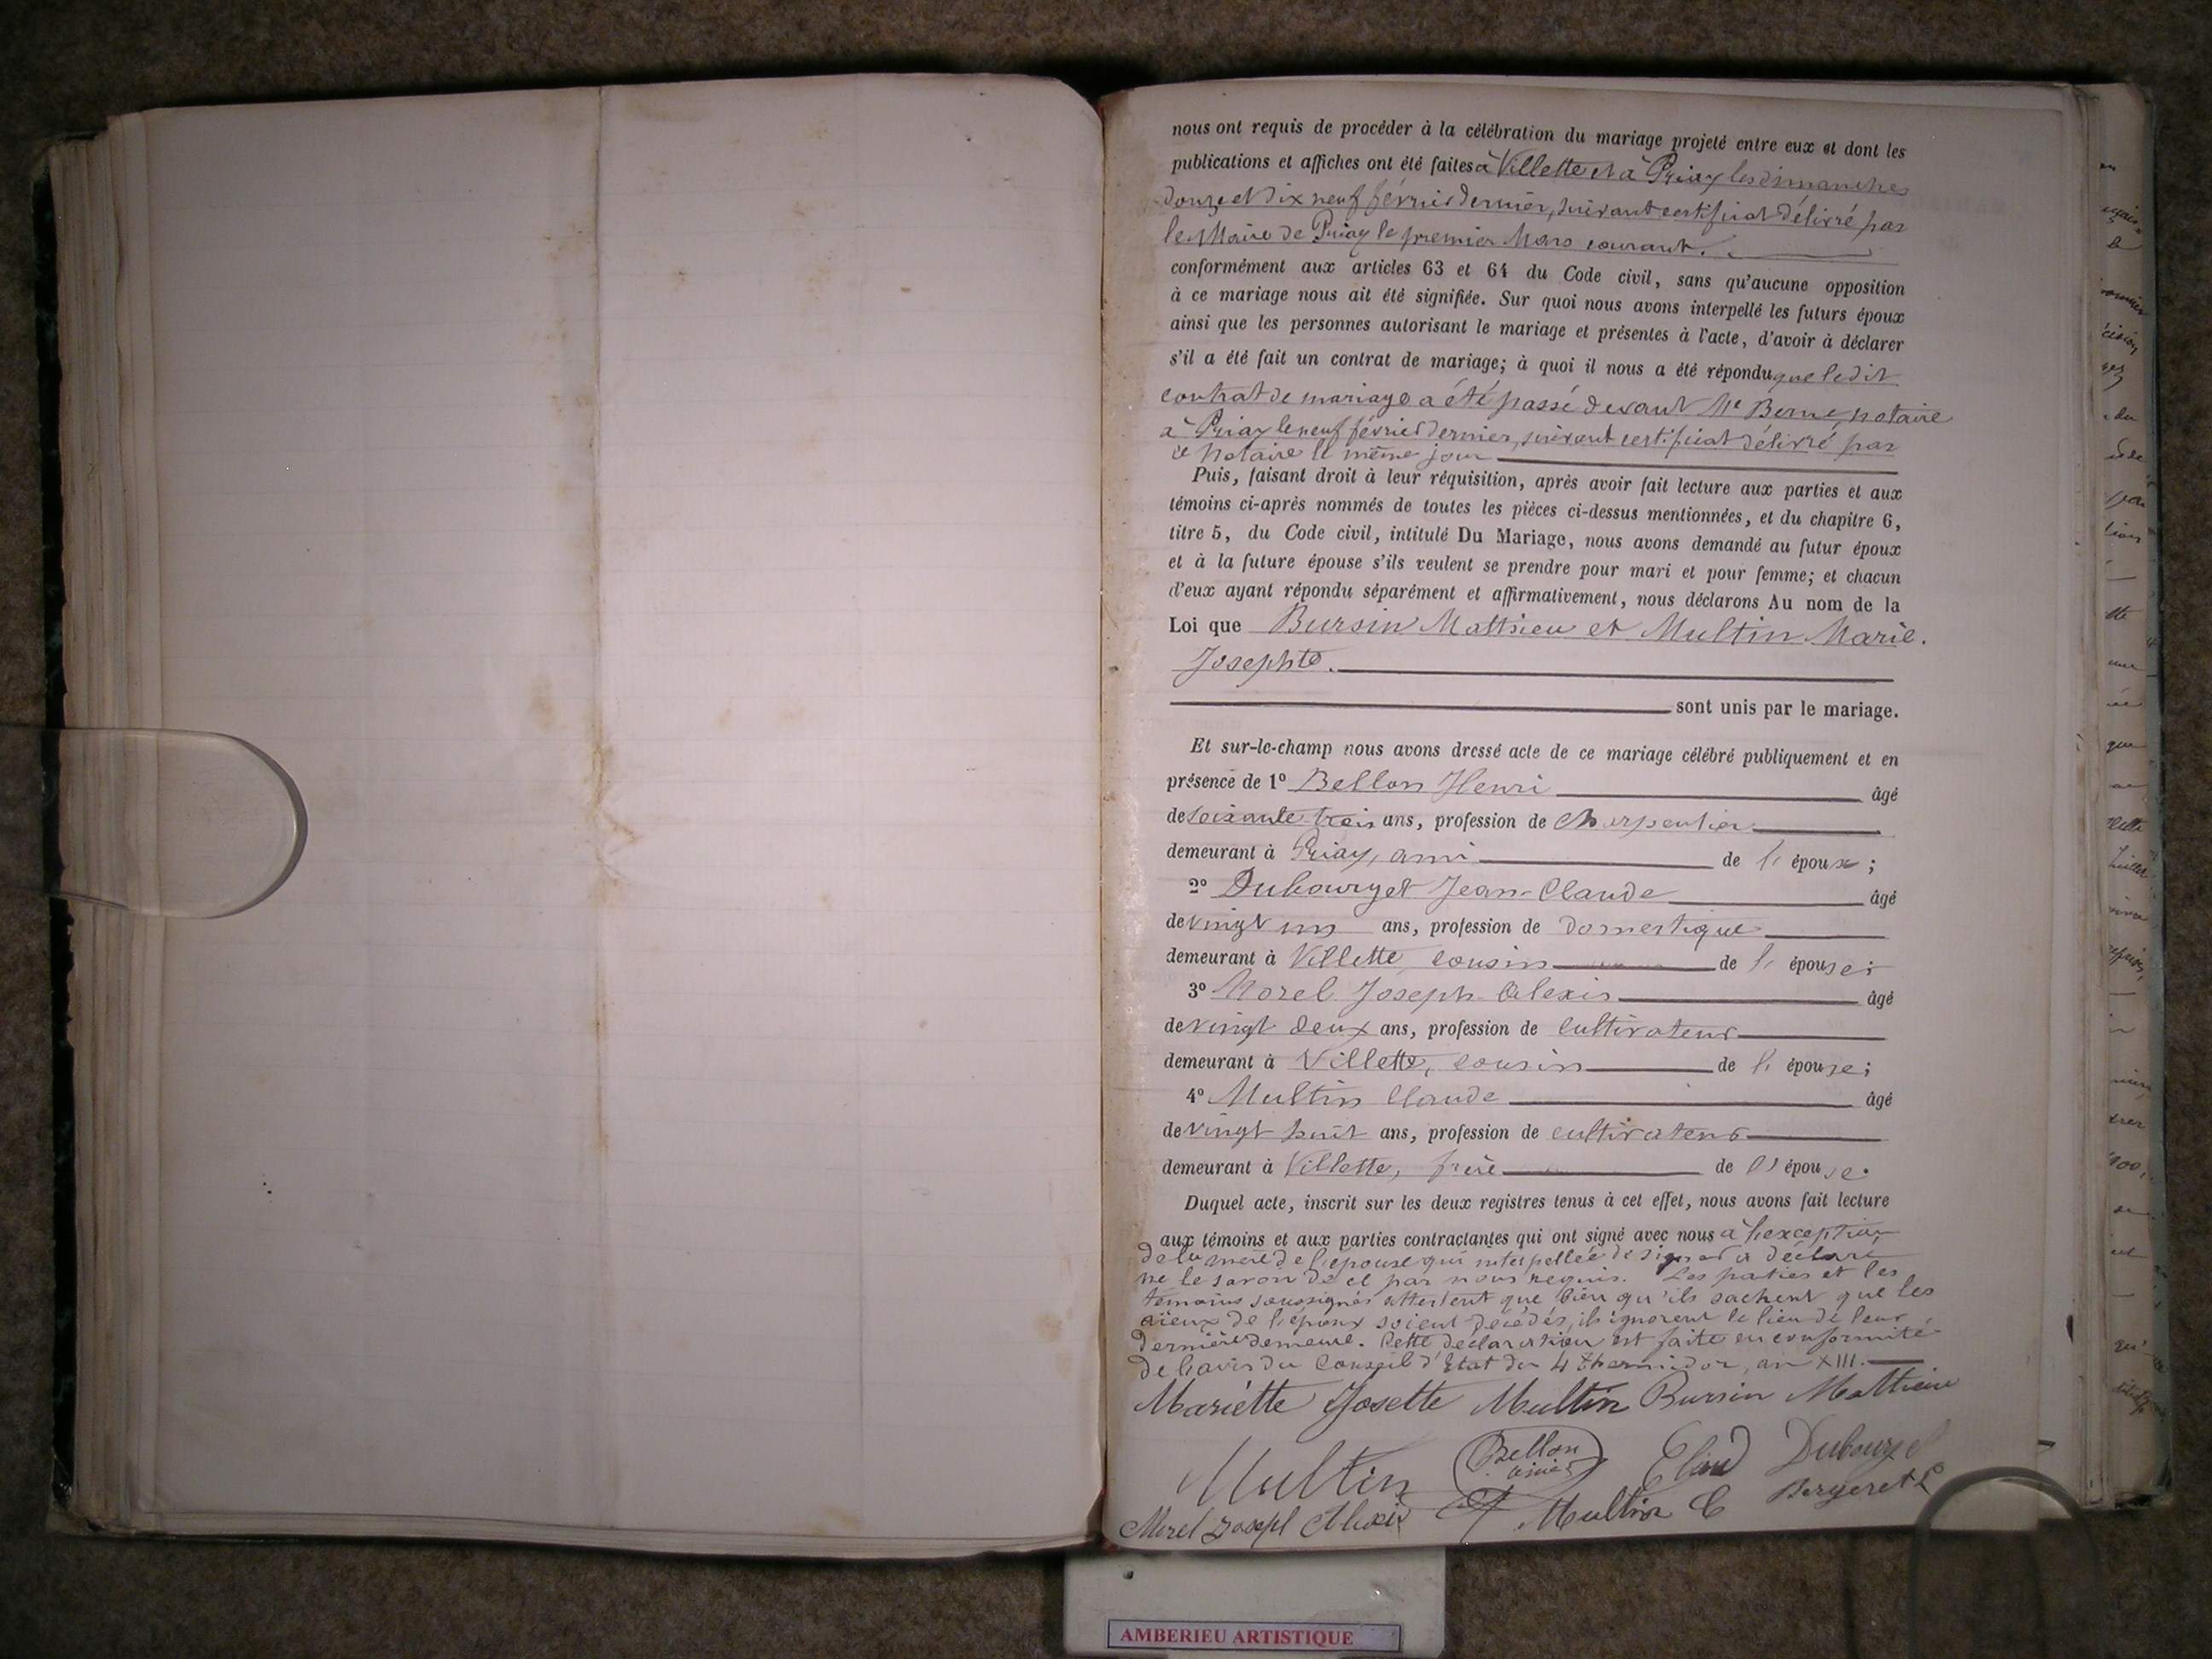 nous ont requis de procéder à la célébration du mariage projeté entre eux et dont les
publications et affiches ont été faites à Villette et à Priay les dimanches
douze et dix neuf février dernier, suivant certificat délivré par
le Maire de Priay le premier Mars courant.
conformément aux articles 63 et 64 du Code civil, sans qu'aucune opposition
à ce mariage nous ait été signifiée. Sur quoi nous avons interpellé les futurs époux
ainsi que les personnes autorisant le mariage et présentes à l'acte, d'avoir à déclarer
s'il a été fait un contrat de mariage; à quoi il nous a été répondu que ledit
contrat de mariage a été passé devant Me Berne, notaire
à Priay le neuf février dernier, suivant certificat délivré par
ce notaire le même jour
Puis, faisant droit à leur réquisition, après avoir fait lecture aux parties et aux
témoins ci-après nommés de toutes les pièces ci-dessus mentionnées, et du chapitre 6,
titre 5, du Code civil, intitulé Du Mariage, nous avons demandé au futur époux
et à la future épouse s'ils veulent se prendre pour mari et pour femme; et chacun
d'eux ayant répondu séparément et affirmativement, nous déclarons Au nom de la
Loi que Bursin Matthieu et Multin Marie.
Josephte.
sont unis par le mariage.
Et sur-le-champ nous avons dressé acte de ce mariage célébré publiquement et en
présence de 1º Bellon Henri âgé
de soixante trois ans, profession de charpentier
demeurant à Priay, ami de l' époux;
2º Dubourget Jean-Claude âgé
de vingt un ans, profession de domestique
demeurant à Villette cousin de l' épouse;
3º Morel Joseph Alexis âgé
de vingt deux ans, profession de cultivateur
demeurant à Villette, cousin de l' épouse;
4º Multin Claude âgé
de vingt huit ans, profession de cultivateur
demeurant à Villette, frère de l' épouse.
Duquel acte, inscrit sur les deux registres tenus à cet effet, nous avons fait lecture
aux témoins et aux parties contractantes qui ont signé avec nous à l'exception
de la mère de l'épouse qui interpellée de signer a déclaré
ne le savoir de ce par nous requis. Les parties et les
témoins soussignés attestent que bien qu'ils sachent que les
aïeux de l'époux soient décédés, ils ignorent le lieu de leur
dernière demeure. Cette déclaration est faite en conformité
de l'avis du Conseil d'Etat du 4 thermidor, an XIII.
Mariette Josette Multin Bursin Mattieu
Multin Bellon Claud Dubourget
Morel Joseph Alexis Multin C Bergeret
AMBERIEU ARTISTIQUE